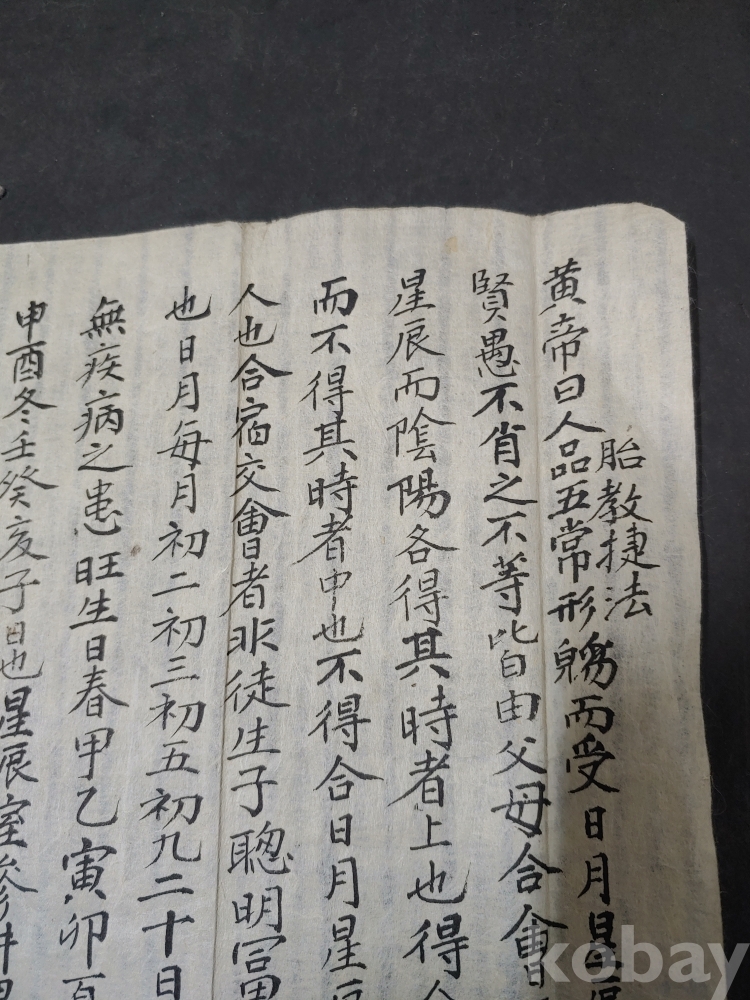 胎教捷法
黃帝曰人品五常形 而受日月星
賢愚不肖之不等皆由父母合會
星辰而陰陽各得其時者上也得
而不得其時者中也不得合日月星
人也合宿交會者非徒生子聰明富
也日月每月初二初三初五初九二十日
無疾病之患旺生日春甲乙寅卯夏
申酉冬壬癸亥子日也星辰室參井
kobay